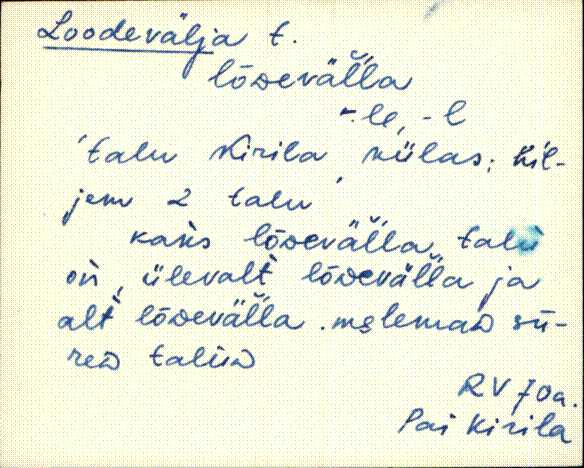 Loodevälja t.
lōᴅeväĺĺa
-le, -l
'talu Kirila külas; hil-
jem 2 talu'
kaks lōᴅeväĺĺa talu
on, ülevalt lōᴅeväĺĺa ja
alt lōᴅeväĺĺa. mȩlemaᴅ sū-
reᴅ taluᴅ
RV 70a.
Pai Kirila